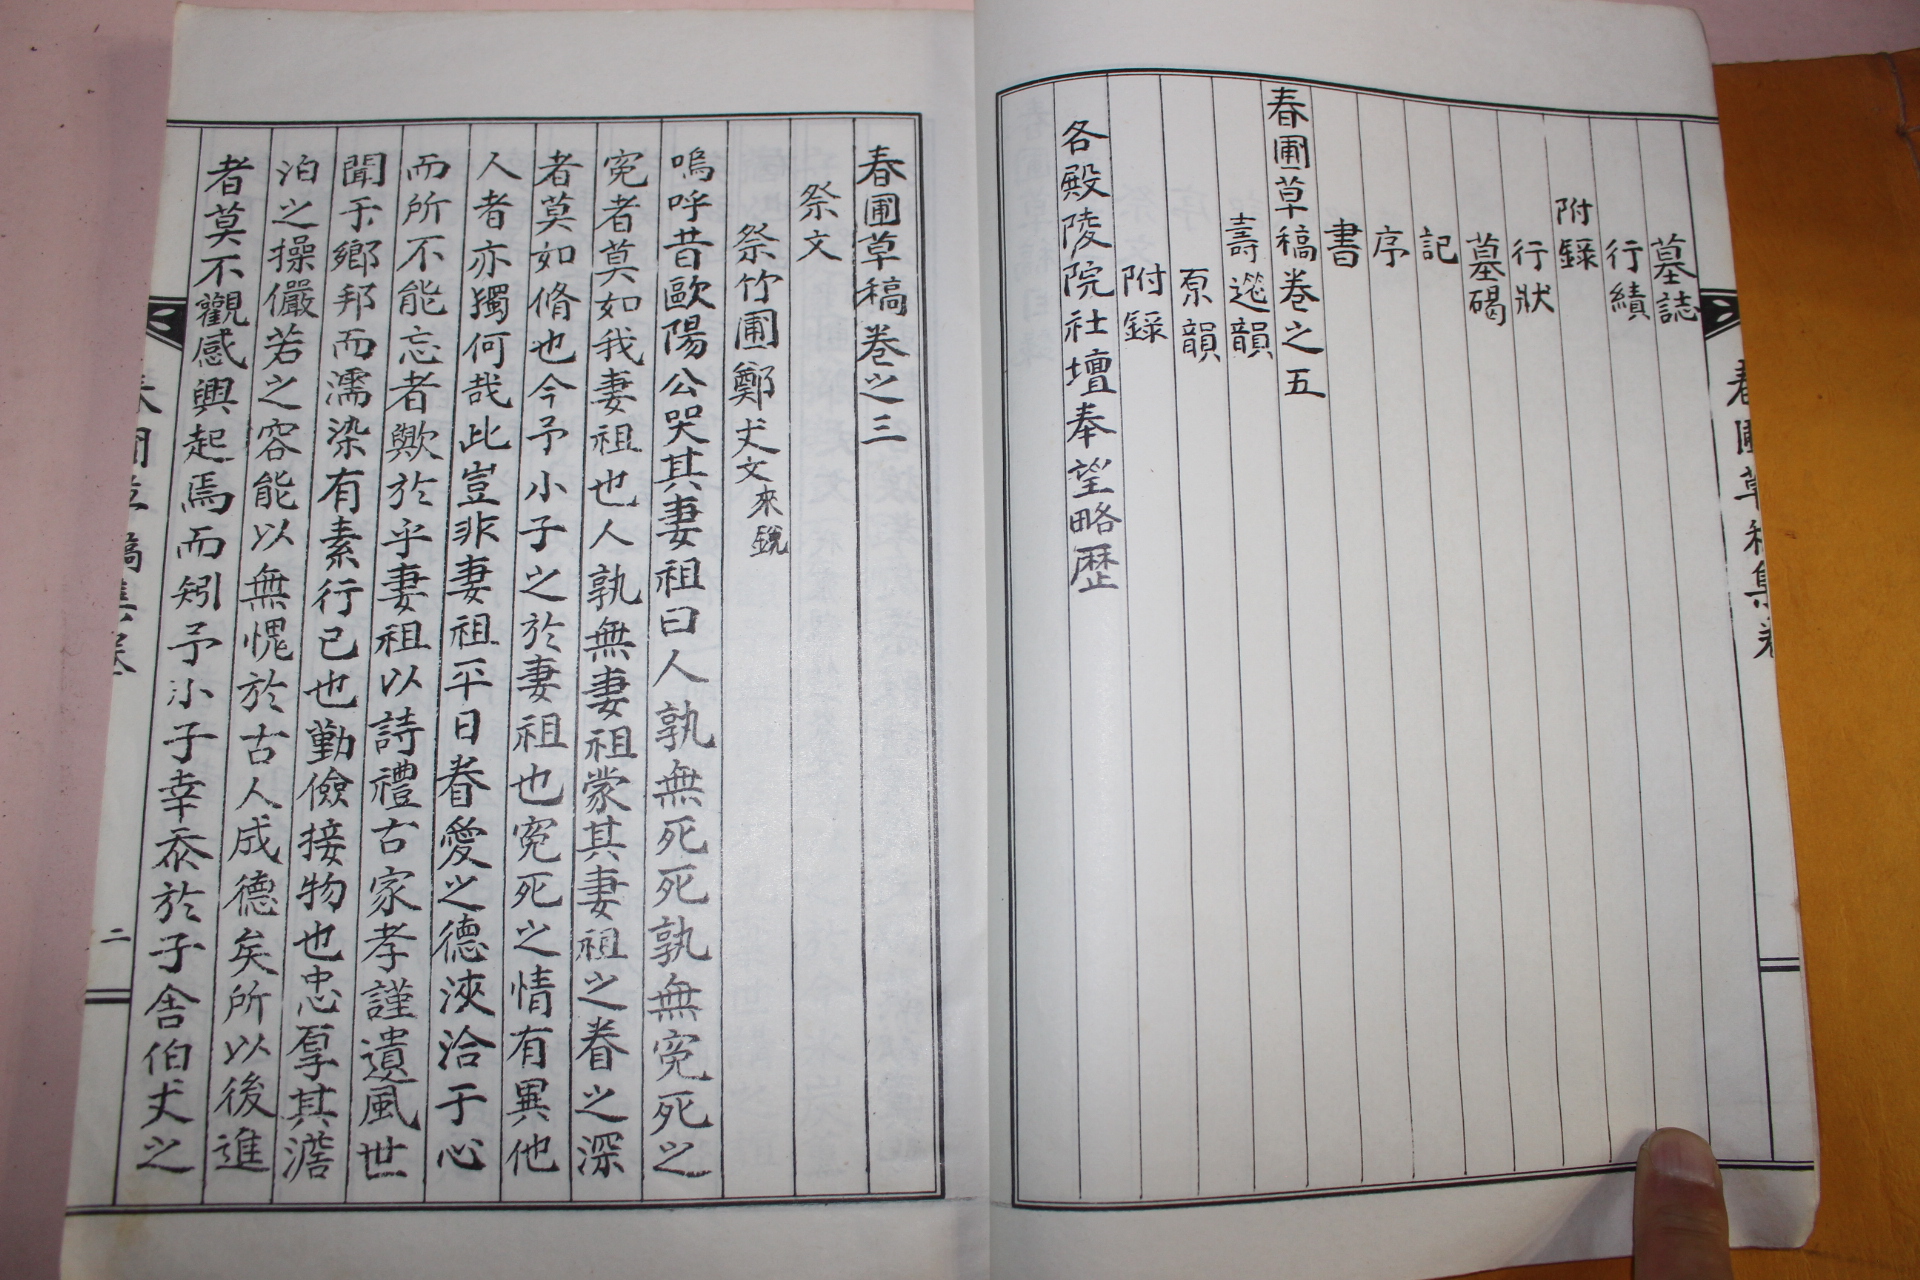 墓誌
行績
附録
行狀
墓碣
記
序
書
春圃草稿卷之五
壽筵韻
原韻
附録
各殿陵院社壇奉望略歷
春圃草稿卷之三
祭文
祭竹圃鄭丈文 來鋭
嗚呼昔歐陽公哭其妻祖曰人孰無死死孰無寃死之
寃者莫如我妻祖也人孰無妻祖蒙其妻祖之眷之深
者莫如脩也今予小子之於妻祖也寃死之情有異他
人者亦獨何哉此豈非妻祖平日眷愛之德浹洽于心
而所不能忘者歟於乎妻祖以詩禮古家孝謹遺風世
聞于鄉邦而濡染有素行已也勤儉接物也忠厚其澹
泊之操儼若之容能以無愧於古人成德矣所以後進
者莫不觀感興起焉而矧予小子幸忝於子舍伯丈之
二